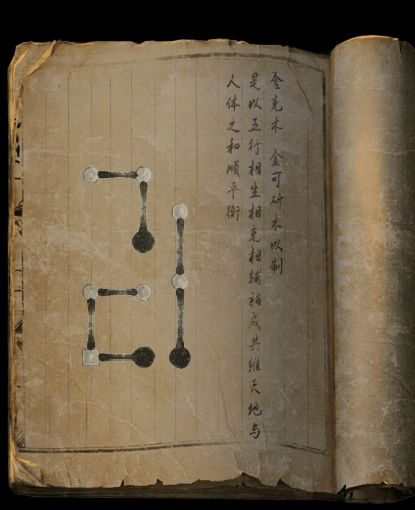 金克木 金可斫木以制
是以五行相生相克相辅相成共维天地与
人体之和顺平衡